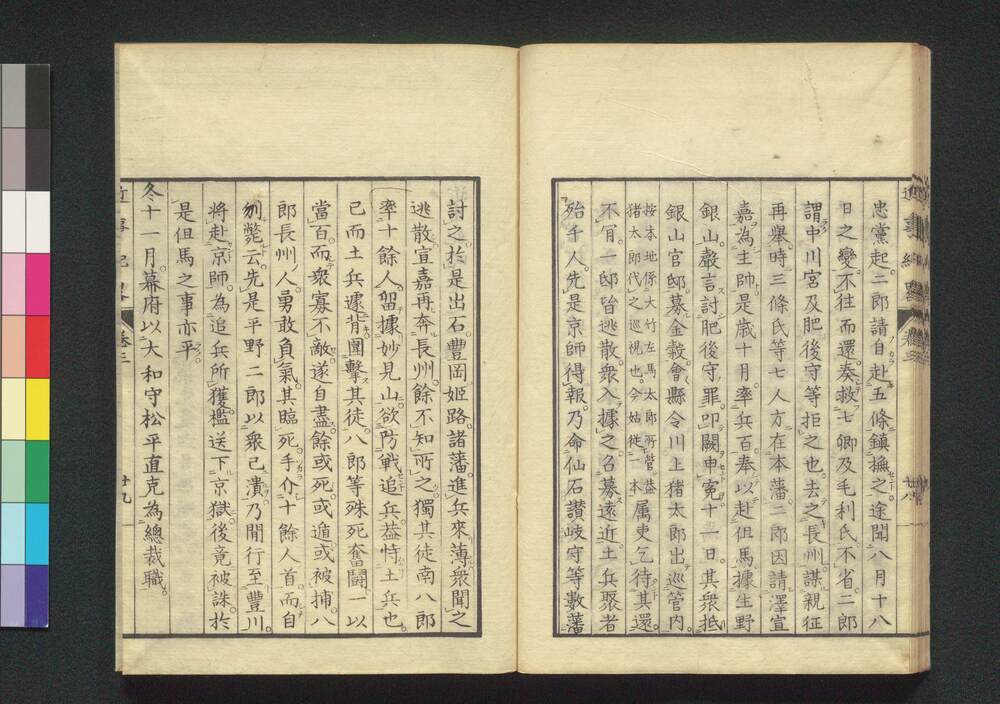 忠黨起。二郎請自赴五條鎮撫之。途聞八月十八
日之變。不往而還。奏救七卿及毛利氏。不省。二郎
謂中川宮及肥後守等拒之也。去之長州。謀親征
再舉。時三條氏等七人方在本藩。二郎因請澤宣
嘉為主帥。是歳十月。率兵百奉以赴但馬。據生野
銀山。嚴言討肥後守罪。叩闕申冤。十一日。其衆抵
銀山官邸。募金穀。會縣令川上猪太郎出巡管内。
按本地係大竹左馬太郎所管。蓋
猪太郎代之巡視也。今姑從一本
属吏乞待其還。
不肎。一邸皆逃散。衆入據之。召募遠近。土兵聚者
殆千人。先是京師得報。乃命仙石讃岐守等數藩
討之。於是出石。豐岡姫路諸藩。進兵來薄。衆聞之
逃散。宣嘉再奔長州。餘不知所之。獨其徒南八郎
率十餘人。畱據妙見山。欲防戰追兵。蓋恃土兵也。
已而土兵遽背。圍擊其徒。八郎等殊死奮鬪。一以
當百。而衆寡不敵。遂自盡。餘或死。或遁。或被捕。八
郎長州人。勇敢負氣。其臨死。手介十餘人首。而自
刎斃云。先是平野二郎以衆已潰。乃間行至豐川。
將赴京師。為追兵所獲。檻送下京獄。後竟被誅。於
是但馬之事亦平。
冬十一月。幕府以大和守松平直克為總裁職。
卷三
十九